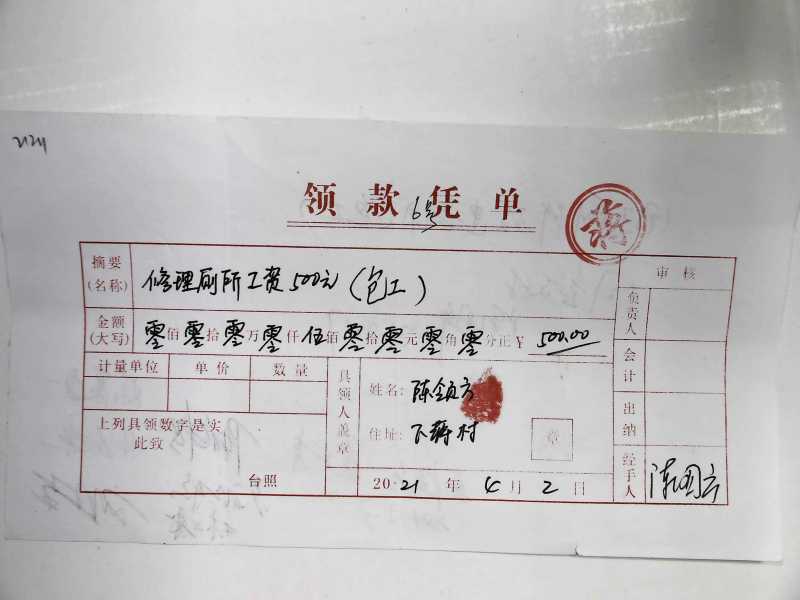 领款凭单
6号
摘要(名称) 修理厕所工费500元(包工)
审核
金额(大写) 零佰零拾零万零仟伍佰零拾零元零角零分正¥ 500.00
负责人
计量单位 单价 数量
具领人盖章
姓名:
会计
上列具领数字是实
此致
住址: 村
章
出纳
台照
2021年4月2日
经手人